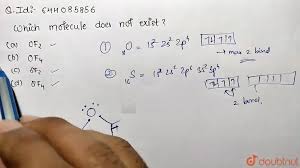 Q.Id: 644085856
Which molecule does not exist?
(a) OF₂ ✓
(b) OF₄
(c) SF₂ ✓
(d) SF₄ ✓
① ₈O = 1s² 2s² 2p⁴
→ max 2 bond
② ₁₆S = 1s² 2s² 2p⁶ 3s² 3p⁴
2 bond,
O
doubtnut